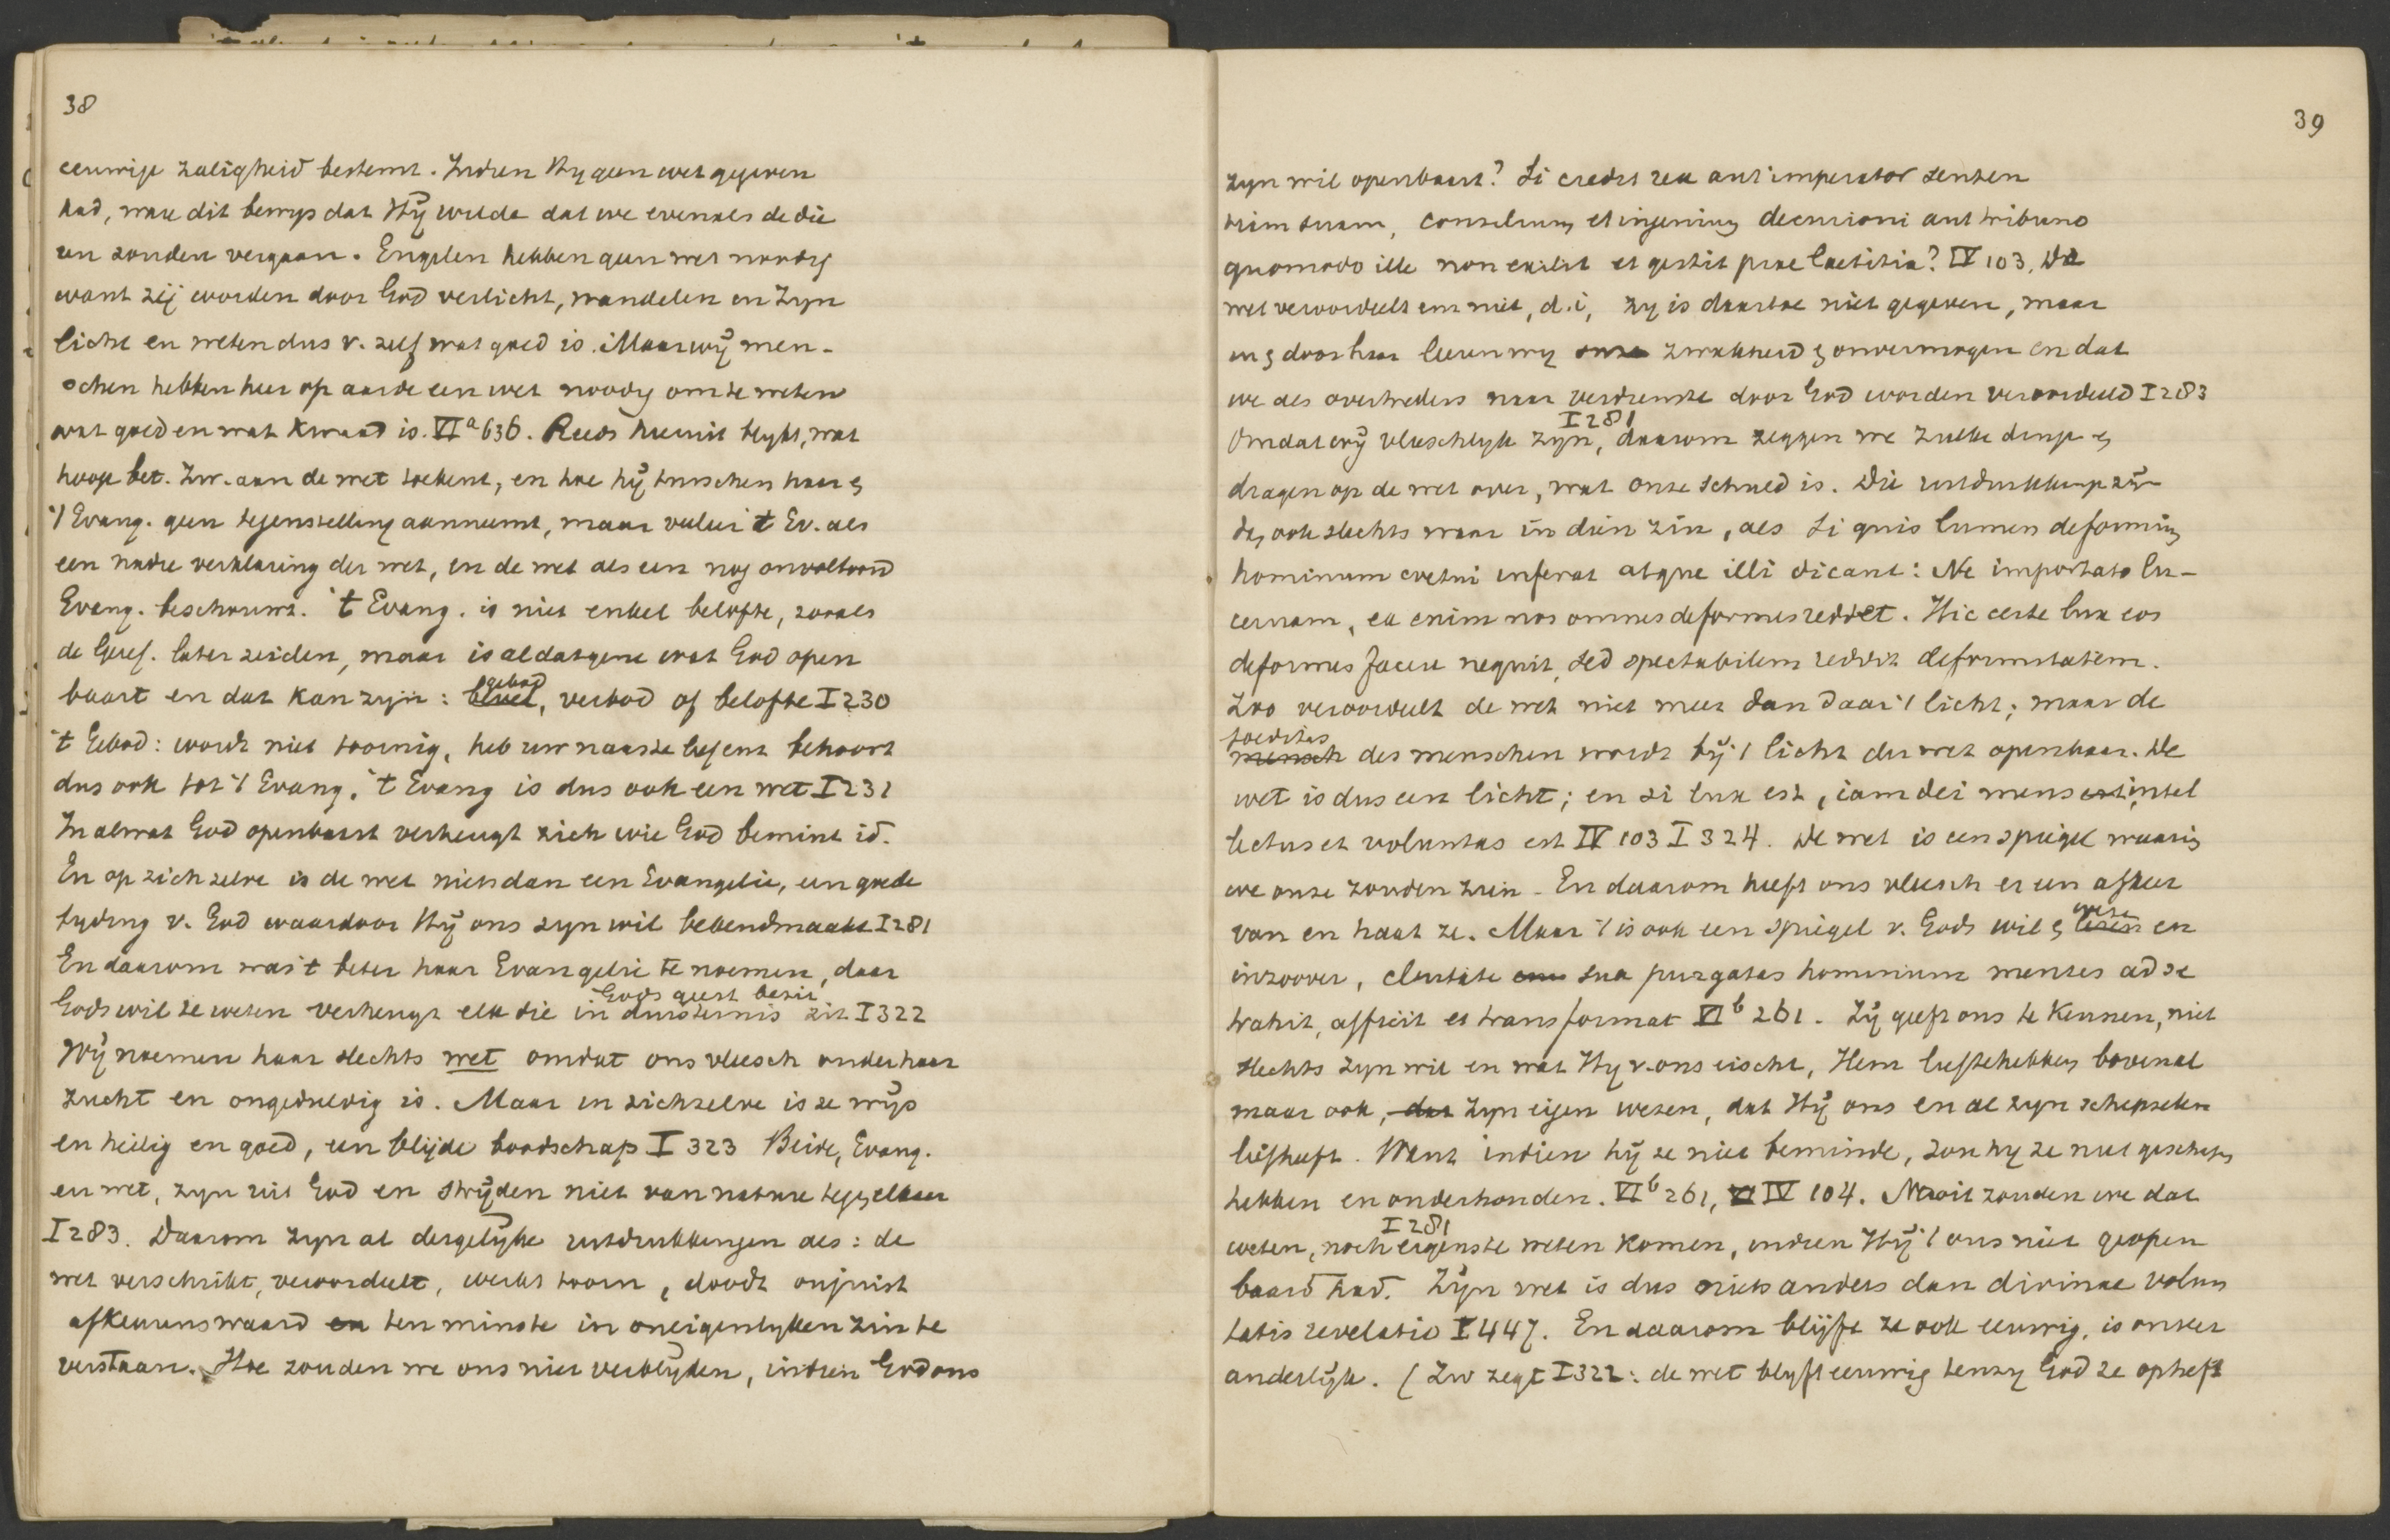 38
eeuwige zaligheid bestemt. Indien Hy geen wet gegeven
had, ware dit bewys dat Hÿ wilde dat we evenals de die
ren zouden vergaan. Engelen hebben geen wet noodig
want zÿ worden door God verlicht, wandelen in Zyn
licht en weten dus v. zelf wat goed is. Maar wÿ men-
schen hebben hier op aarde een wet noodig om te weten
wat goed en wat kwaad is. VIa 636. Reeds hieruit blykt, wat
hooge bet. Zw. aan de wet toekent, en hoe hÿ tusschen haar en
't Evang. geen tegenstelling aanneemt, maar veeleer 't Ev. als
een nadre verklaring der wet, en de wet als een nog onvoltooid
Evang. beschouwt. 't Evang. is niet enkel belofte, zooals
de Geref. later zeiden, maar is al datgene wat God open
baart en dat kan zyn: bevel gebod, verbod of belofte I 230
't Gebod: wordt niet toornig, heb uw naaste lief enz behoort
dus ook tot 't Evang. 't Evang is dus ook een wet I 231
In al wat God openbaart verheugt zich wie God bemint id.
En op zich zelve is de wet niets dan een Evangelie, een goede
tyding v. God waardoor Hÿ ons zyn wil bekendmaakt I 281
En daarom was 't beter haar Evangelie te noemen, daar
Gods geest bezit
Gods wil te weten verheugt elk die in duisternis zit I 322
Wÿ noemen haar slechts wet omdat ons vleesch onder haar
zucht en ongeduldig is. Maar in zichzelve is ze wÿs
en heilig en goed, een blÿde boodschap I 323 Beide, Evang.
en wet, zyn uit God en strÿden niet van nature tegen elkaar
I 283. Daarom zyn al dergelÿke uitdrukkingen als: de
wet verschrikt, veroordeelt, werkt toorn, doodt onjuist
afkeurenswaard en ten minste in oneigenlyken zin te
verstaan. Hoe zouden we ons niet verblÿden, indien God ons
39
zyn wil openbaart? Si credit rex aut imperator senten
tiam suam, consilium et ingenium decurioni aut tribuno
quomodo ille non exilit et gestit prae laetitia? IV 103. De
wet veroordeelt ons niet, d.i, zy is daartoe niet gegeven, maar
in en door haar leeren wy onze zwakheid en onvermogen en dat
we als overtreders naar verdienste door God worden veroordeeld I 283
I 281
Omdat wÿ vleeschelyk zyn, daarom zeggen we zulke dingen
dragen op de wet over, wat onze schuld is. Die uitdrukkingen zÿn
dus ook slechts waar in dien zin, als Si quis lumen deformium
hominum coetui inferat atque illi dicant: Ne importato lu-
cernam, ea enim nos omnes deformes reddet. Hic certe lux eos
deformes facere nequit, sed spectabilem reddit deformitatem.
Zoo veroordeelt de wet niet meer dan daar 't licht; maar de
foeditas
mensch des menschen wordt bÿ 't licht der wet openbaar. De
wet is dus een licht; en si lux est, iam dei mens est, intel
lectus et voluntas est IV 103 I 324. De wet is een spiegel waarin
we onze zonden zien. En daarom heeft ons vleesch er een afkeer
van en haat ze. Maar 't is ook een spiegel v. Gods wil en wezen en
inzoover, claritate sua purgatas hominum mentes ad se
trahit, afficit et transformat VIb 261. Zÿ geeft ons te kennen, niet
slechts zyn wil en wat Hy v. ons eischt, Hem lief te hebben bovenal
maar ook, dat zyn eigen wezen, dat Hÿ ons en al zyn schepselen
liefheeft. Want indien hÿ ze niet beminde, zou hy ze niet geschapen
hebben en onderhouden. VIb 261, VI IV 104. Nooit zouden we dat
I 281
weten, noch ergens te weten komen, indien Hÿ 't ons niet geopen
baard had. Zÿn wet is dus niets anders dan divinae volun
tatis revelatio I 447. En daarom blÿft ze ook eeuwig, is onver
anderlÿk. (Zw zegt I 322: de wet blyft eeuwig tenzy God ze opheft